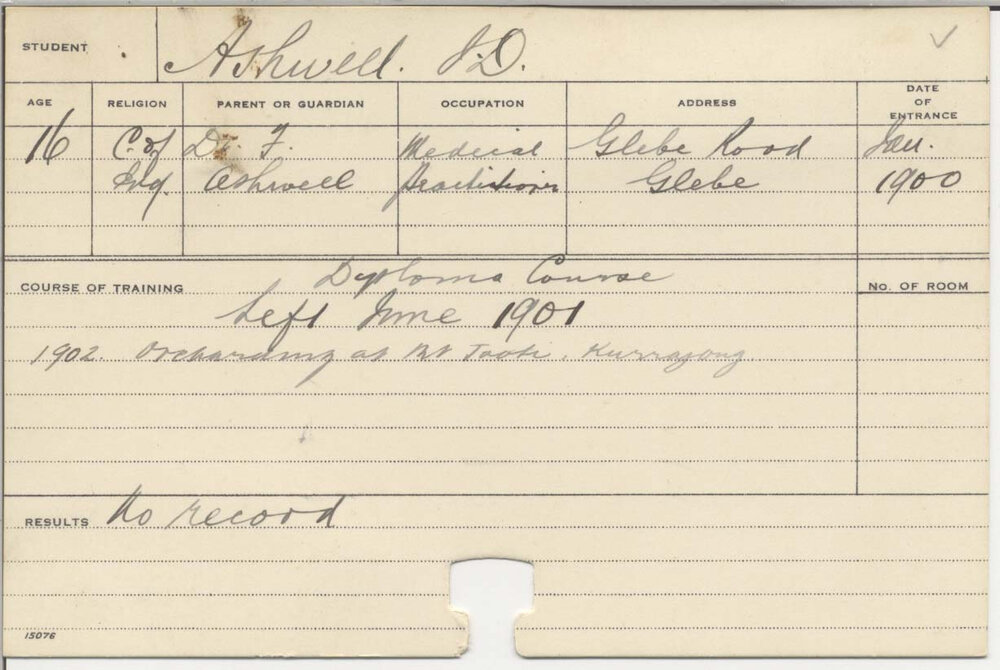 STUDENT Ashwell. J.D.
AGE RELIGION PARENT OR GUARDIAN OCCUPATION ADDRESS DATE OF ENTRANCE
16 C. of Dr. F. Medical Glebe Road Jan.
Eng. Ashwell Practitioner Glebe 1900
Diploma Course
COURSE OF TRAINING No. OF ROOM
Left June 1901
1902. Orcharding at Mt Tootie, Kurrajong
RESULTS No record
15076